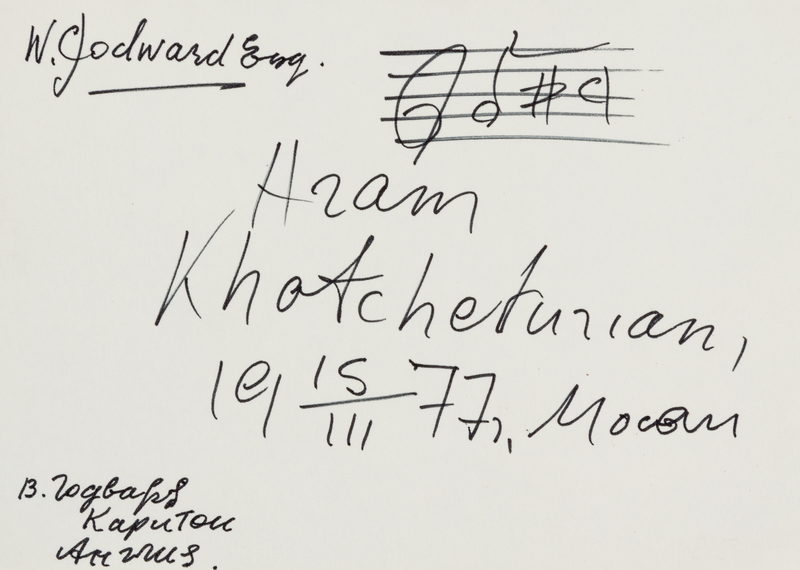 W. Godward Esq.
Aram
Khatcheturian,
19 15/III 77г,
В. Годвард
Карлтон
Англия.